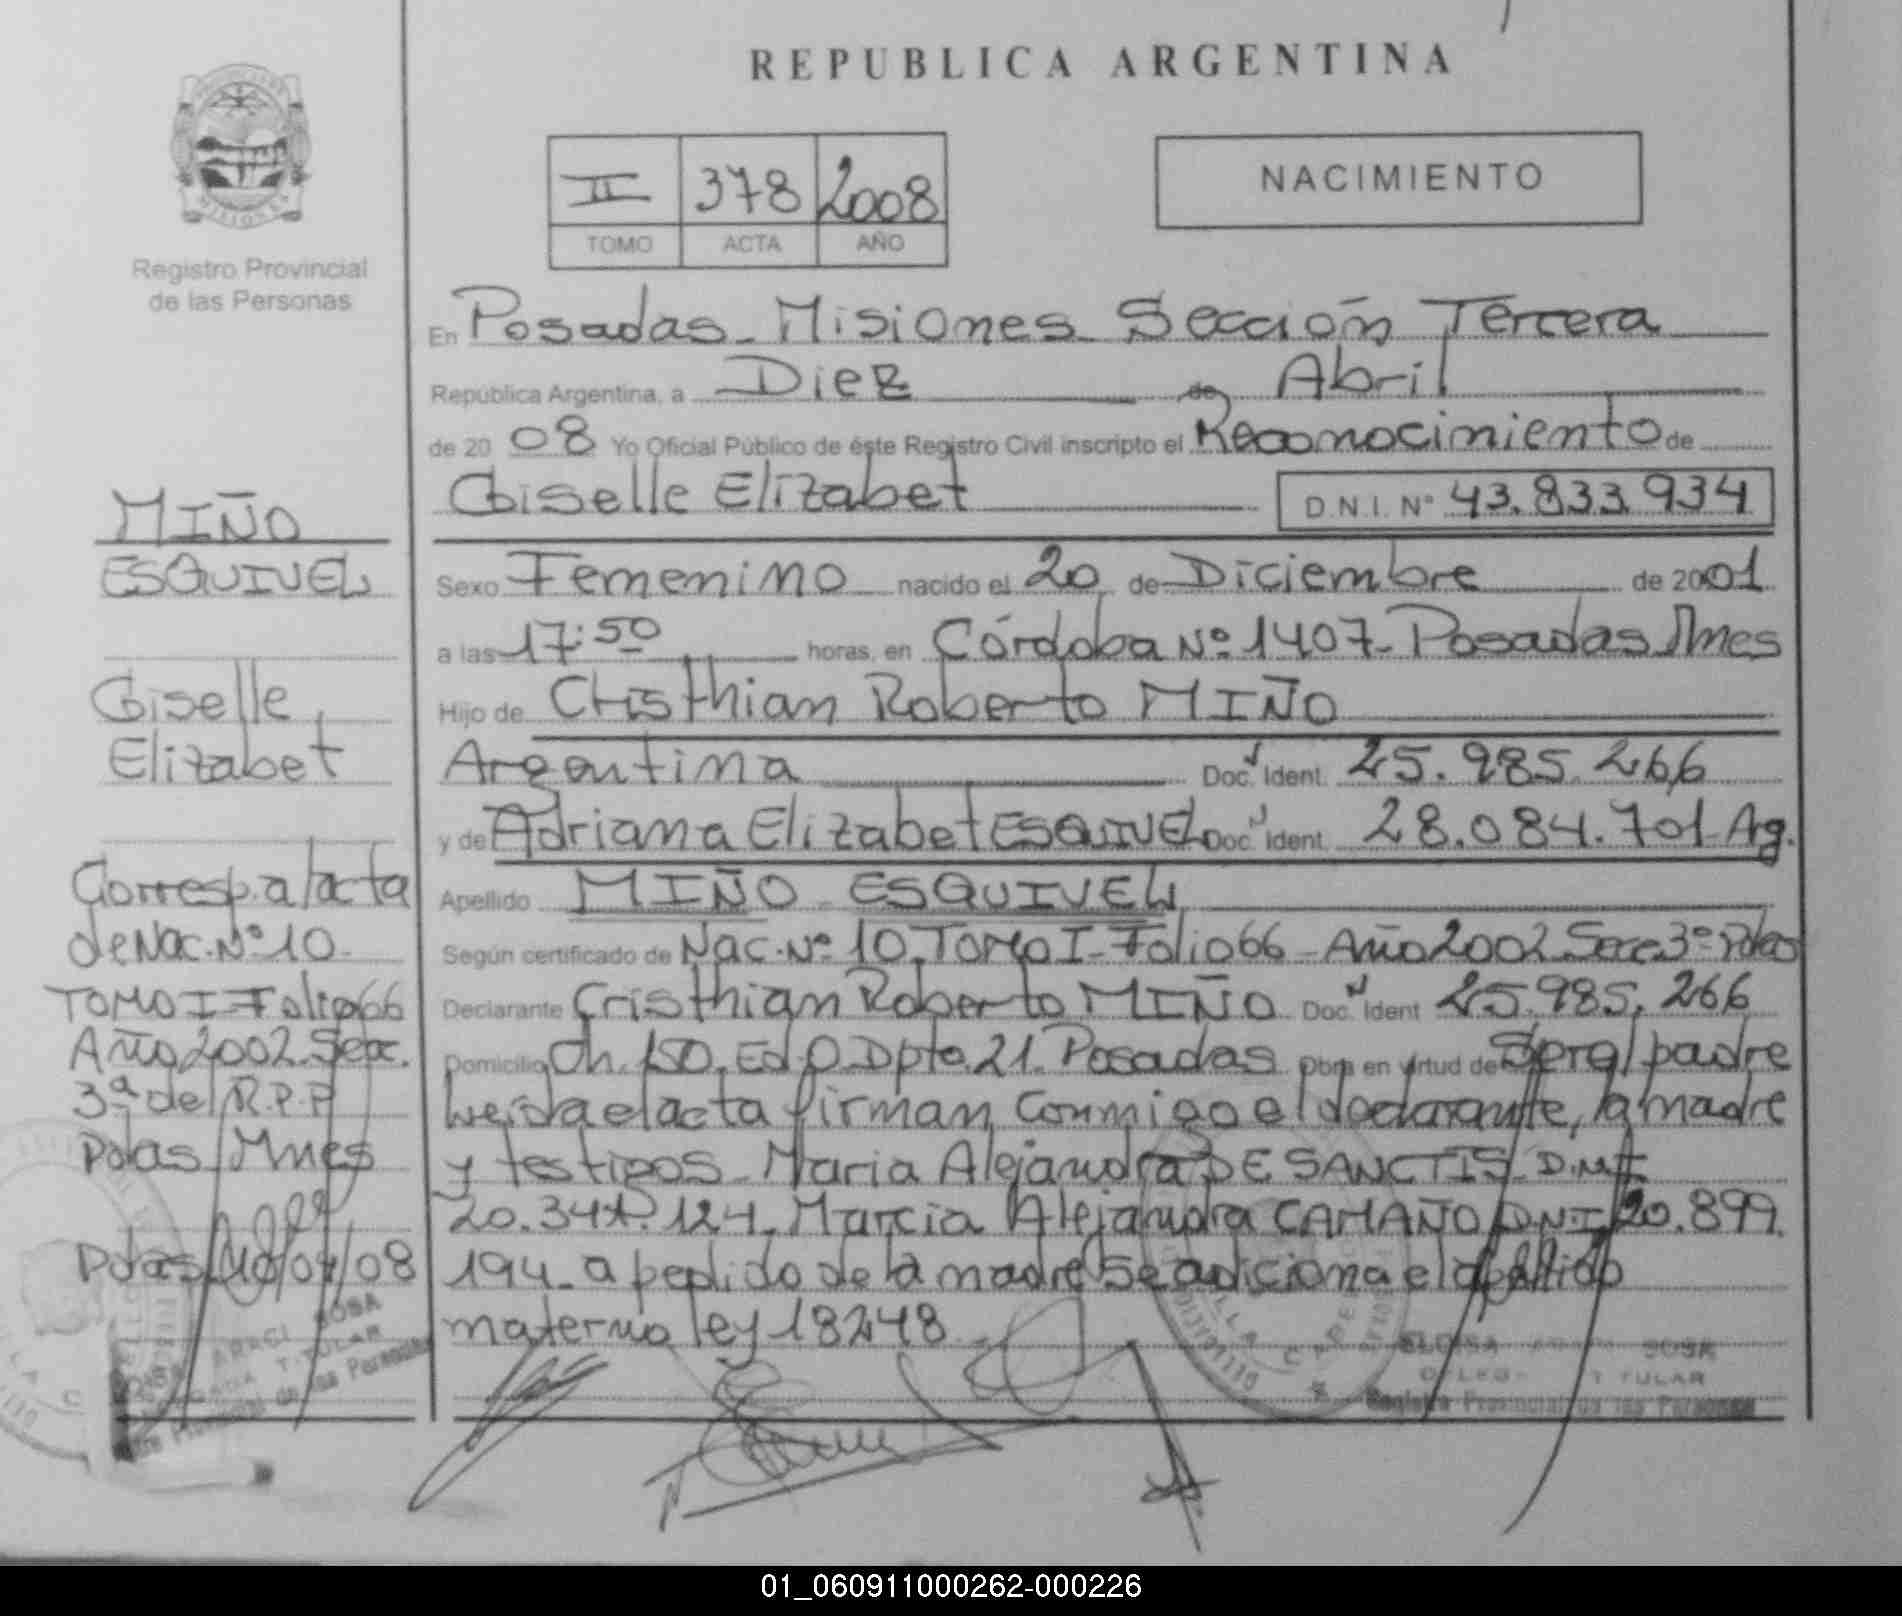 REPUBLICA ARGENTINA
II 378 2008
TOMO ACTA AÑO
NACIMIENTO
Registro Provincial
de las Personas
MIÑO
ESQUIVEL
Giselle
Elizabet
Corresp. a l acta
de Nac. Nº 10
TOMO I - Folio 66
Año 2002. Secc.
3ª del R.P.P
Pdas Mnes
Pdas 10/04/08
En Posadas - Misiones - Sección Tercera
República Argentina, a Diez de Abril
de 20 08 Yo Oficial Público de éste Registro Civil inscripto el Reconocimiento de
Giselle Elizabet D.N.I. Nº 43.833.934
Sexo Femenino nacido el 20 de Diciembre de 2001
a las 17:50 horas, en Córdoba Nº 1407 - Posadas Mnes
Hijo de Cristhian Roberto MIÑO
Argentina Doc. Ident. 25.985.266
y de Adriana Elizabet ESQUIVEL Doc. Ident. 28.084.701 - Arg.
Apellido MIÑO - ESQUIVEL
Según certificado de Nac. Nº 10. TOMO I - Folio 66 - Año 2002 Secc 3ª Pdas
Declarante Cristhian Roberto MIÑO Doc. Ident 25.985.266
Domicilio Ch. 150. Ed. O. Dpto. 21. Posadas Obra en virtud de Ser el padre
leída el acta firman conmigo el declarante, la madre
y testigos - Maria Alejandra DE SANCTIS - D.N.I
20.341.124 - Marcia Alejandra CAMAÑO D.N.I 20.899.
194 - a pedido de la madre se adiciona el apellido
materno ley 18248
SOSA
TITULAR
ELOISA SOSA
TITULAR
Registro Provincial de las Personas
01_060911000262-000226